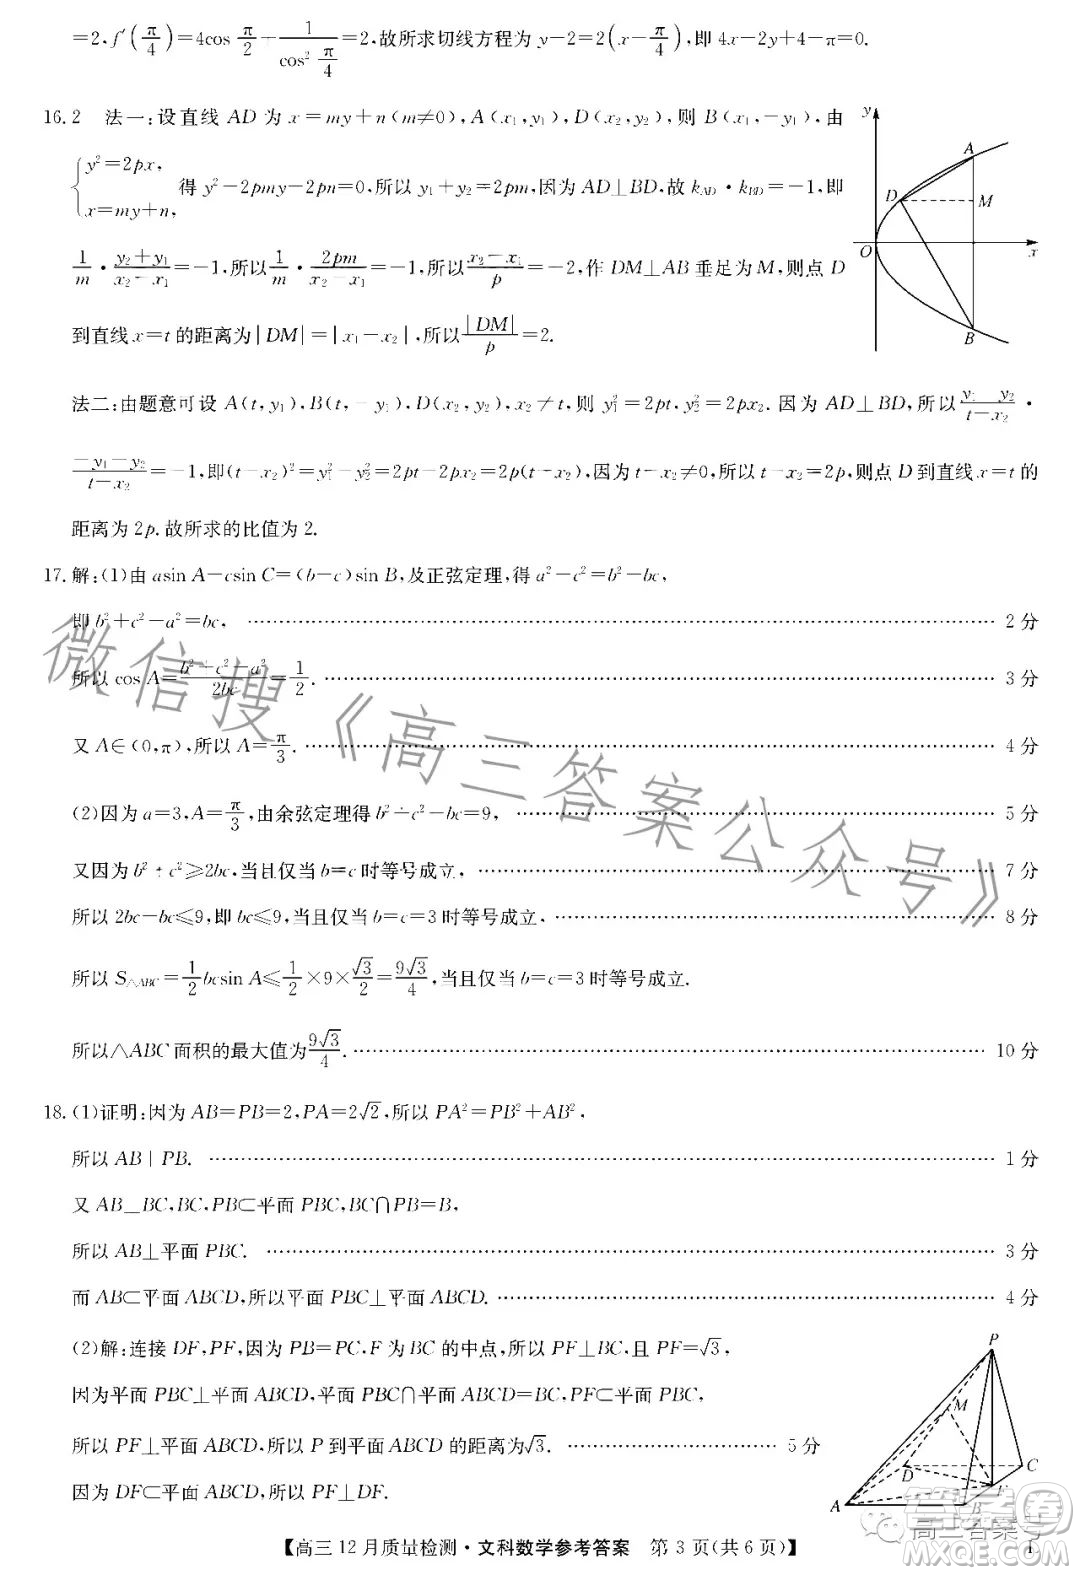 =2,f′(π/4)=4cos π/2+1/cos² π/4=2,故所求切线方程为 y-2=2(x-π/4),即 4x-2y+4-π=0.
16.2 法一:设直线 AD 为 x=my+n(m≠0),A(x₁,y₁),D(x₂,y₂),则 B(x₁,-y₁),由
{y²=2px, x=my+n, 得 y²-2pmy-2pn=0,所以 y₁+y₂=2pm,因为 AD⊥BD,故 k_AD·k_BD=-1,即
1/m·(y₂+y₁)/(x₂-x₁)=-1,所以 1/m·2pm/(x₂-x₁)=-1,所以 (x₂-x₁)/p=-2,作 DM⊥AB 垂足为 M,则点 D
到直线 x=t 的距离为|DM|=|x₁-x₂|,所以 |DM|/p=2.
y
A
D
M
O
x
B
法二:由题意可设 A(t,y₁),B(t,-y₁),D(x₂,y₂),x₂≠t,则 y₁²=2pt,y₂²=2px₂.因为 AD⊥BD,所以 (y₁-y₂)/(t-x₂)·
(-y₁-y₂)/(t-x₂)=-1,即(t-x₂)²=y₁²-y₂²=2pt-2px₂=2p(t-x₂),因为 t-x₂≠0,所以 t-x₂=2p,则点 D 到直线 x=t 的
距离为 2p.故所求的比值为 2.
17.解:(1)由 asin A-csin C=(b-c)sin B,及正弦定理,得 a²-c²=b²-bc,
即 b²+c²-a²=bc, …… 2 分
所以 cos A=(b²+c²-a²)/2bc=1/2. …… 3 分
又 A∈(0,π),所以 A=π/3. …… 4 分
(2)因为 a=3,A=π/3,由余弦定理得 b²+c²-bc=9, …… 5 分
又因为 b²+c²≥2bc,当且仅当 b=c 时等号成立, …… 7 分
所以 2bc-bc≤9,即 bc≤9,当且仅当 b=c=3 时等号成立, …… 8 分
所以 S△ABC=1/2 bcsin A≤1/2×9×√3/2=9√3/4,当且仅当 b=c=3 时等号成立.
所以△ABC 面积的最大值为 9√3/4. …… 10 分
18.(1)证明:因为 AB=PB=2,PA=2√2,所以 PA²=PB²+AB²,
所以 AB⊥PB. …… 1 分
又 AB⊥BC,BC,PB⊂平面 PBC,BC∩PB=B,
所以 AB⊥平面 PBC. …… 3 分
而 AB⊂平面 ABCD,所以平面 PBC⊥平面 ABCD. …… 4 分
(2)解:连接 DF,PF,因为 PB=PC,F 为 BC 的中点,所以 PF⊥BC,且 PF=√3,
因为平面 PBC⊥平面 ABCD,平面 PBC∩平面 ABCD=BC,PF⊂平面 PBC,
所以 PF⊥平面 ABCD,所以 P 到平面 ABCD 的距离为√3. …… 5 分
因为 DF⊂平面 ABCD,所以 PF⊥DF.
P
M
D
C
F
A
B
【高三 12 月质量检测·文科数学参考答案 第 3 页(共 6 页)】
微信搜《高三答案公众号》
高三答案号
答案圈